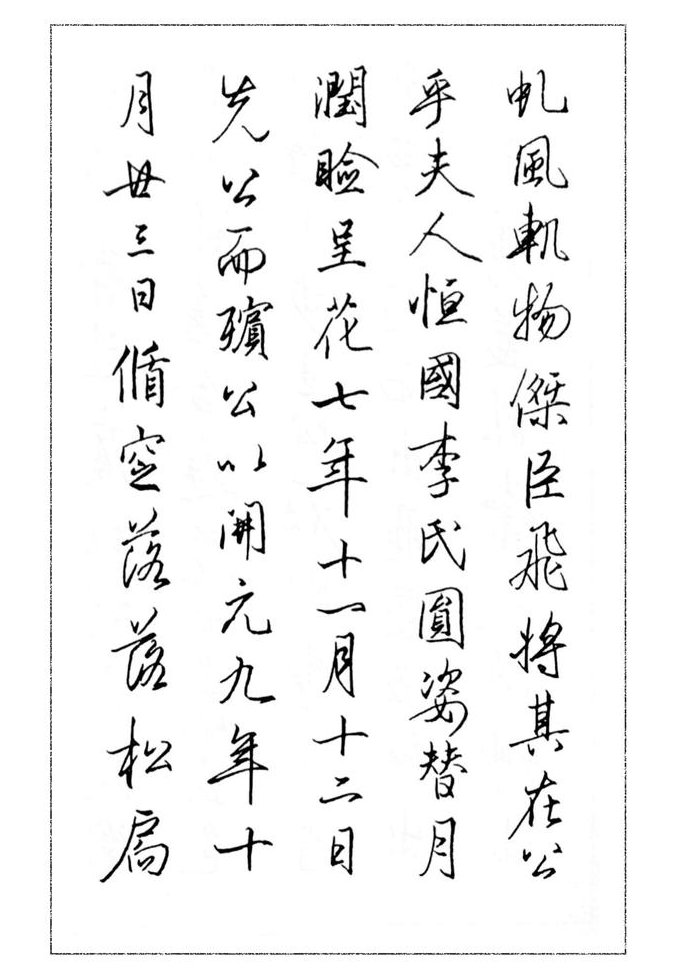 虬風軌物傑臣飛將其在公
乎夫人恒國李氏圓姿替月
潤臉呈花七年十一月十二日
先公而殯公以開元九年十
月廿三日循空落落松扃